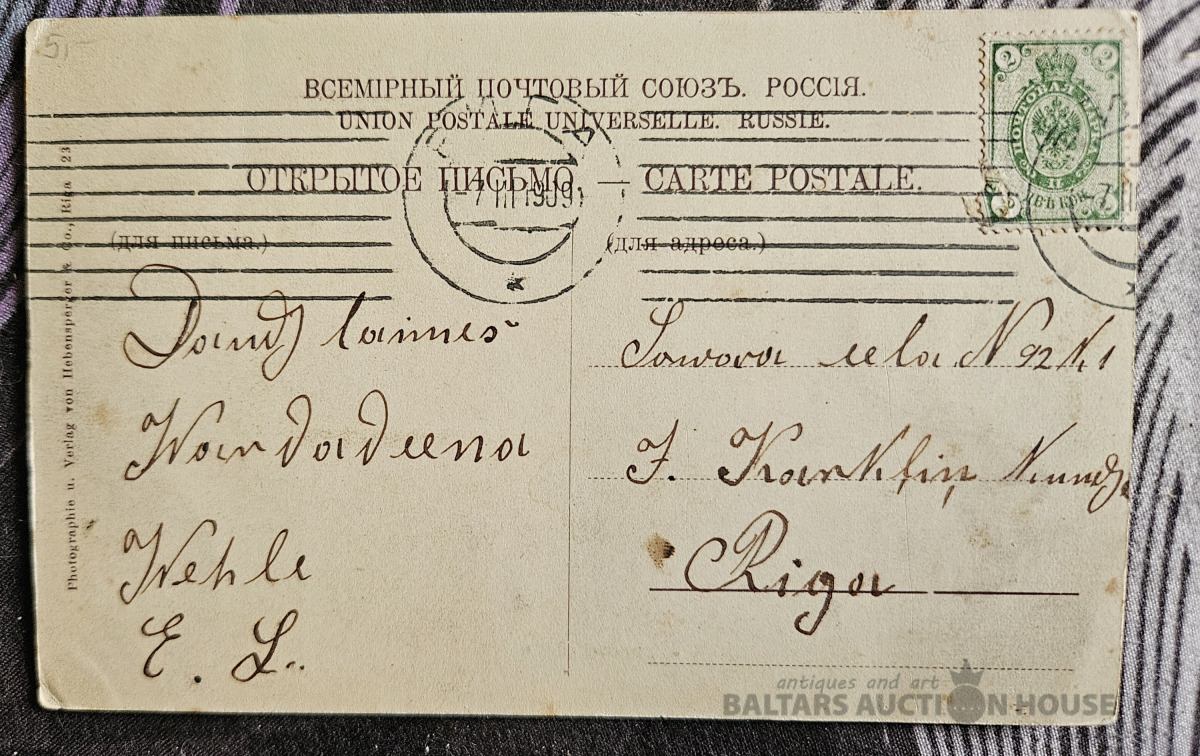 5,-
ВСЕМІРНЫЙ ПОЧТОВЫЙ СОЮЗЪ. РОССІЯ.
UNION POSTALE UNIVERSELLE. RUSSIE.
ОТКРЫТОЕ ПИСЬМО. — CARTE POSTALE.
-7 III 1909
(для письма.)
(для адреса.)
Photographie u. Verlag von Hebensperger & Co., Riga 23
2 2
ПОЧТОВАЯ МАРКА
ДВѢ КОП.
Daudz laimes
Wardadeena
Wehle
E. L.
Suworova eela N 92 k 1
J. Karkliņ kundz.
Riga
antiques and art
BALTARS AUCTION HOUSE